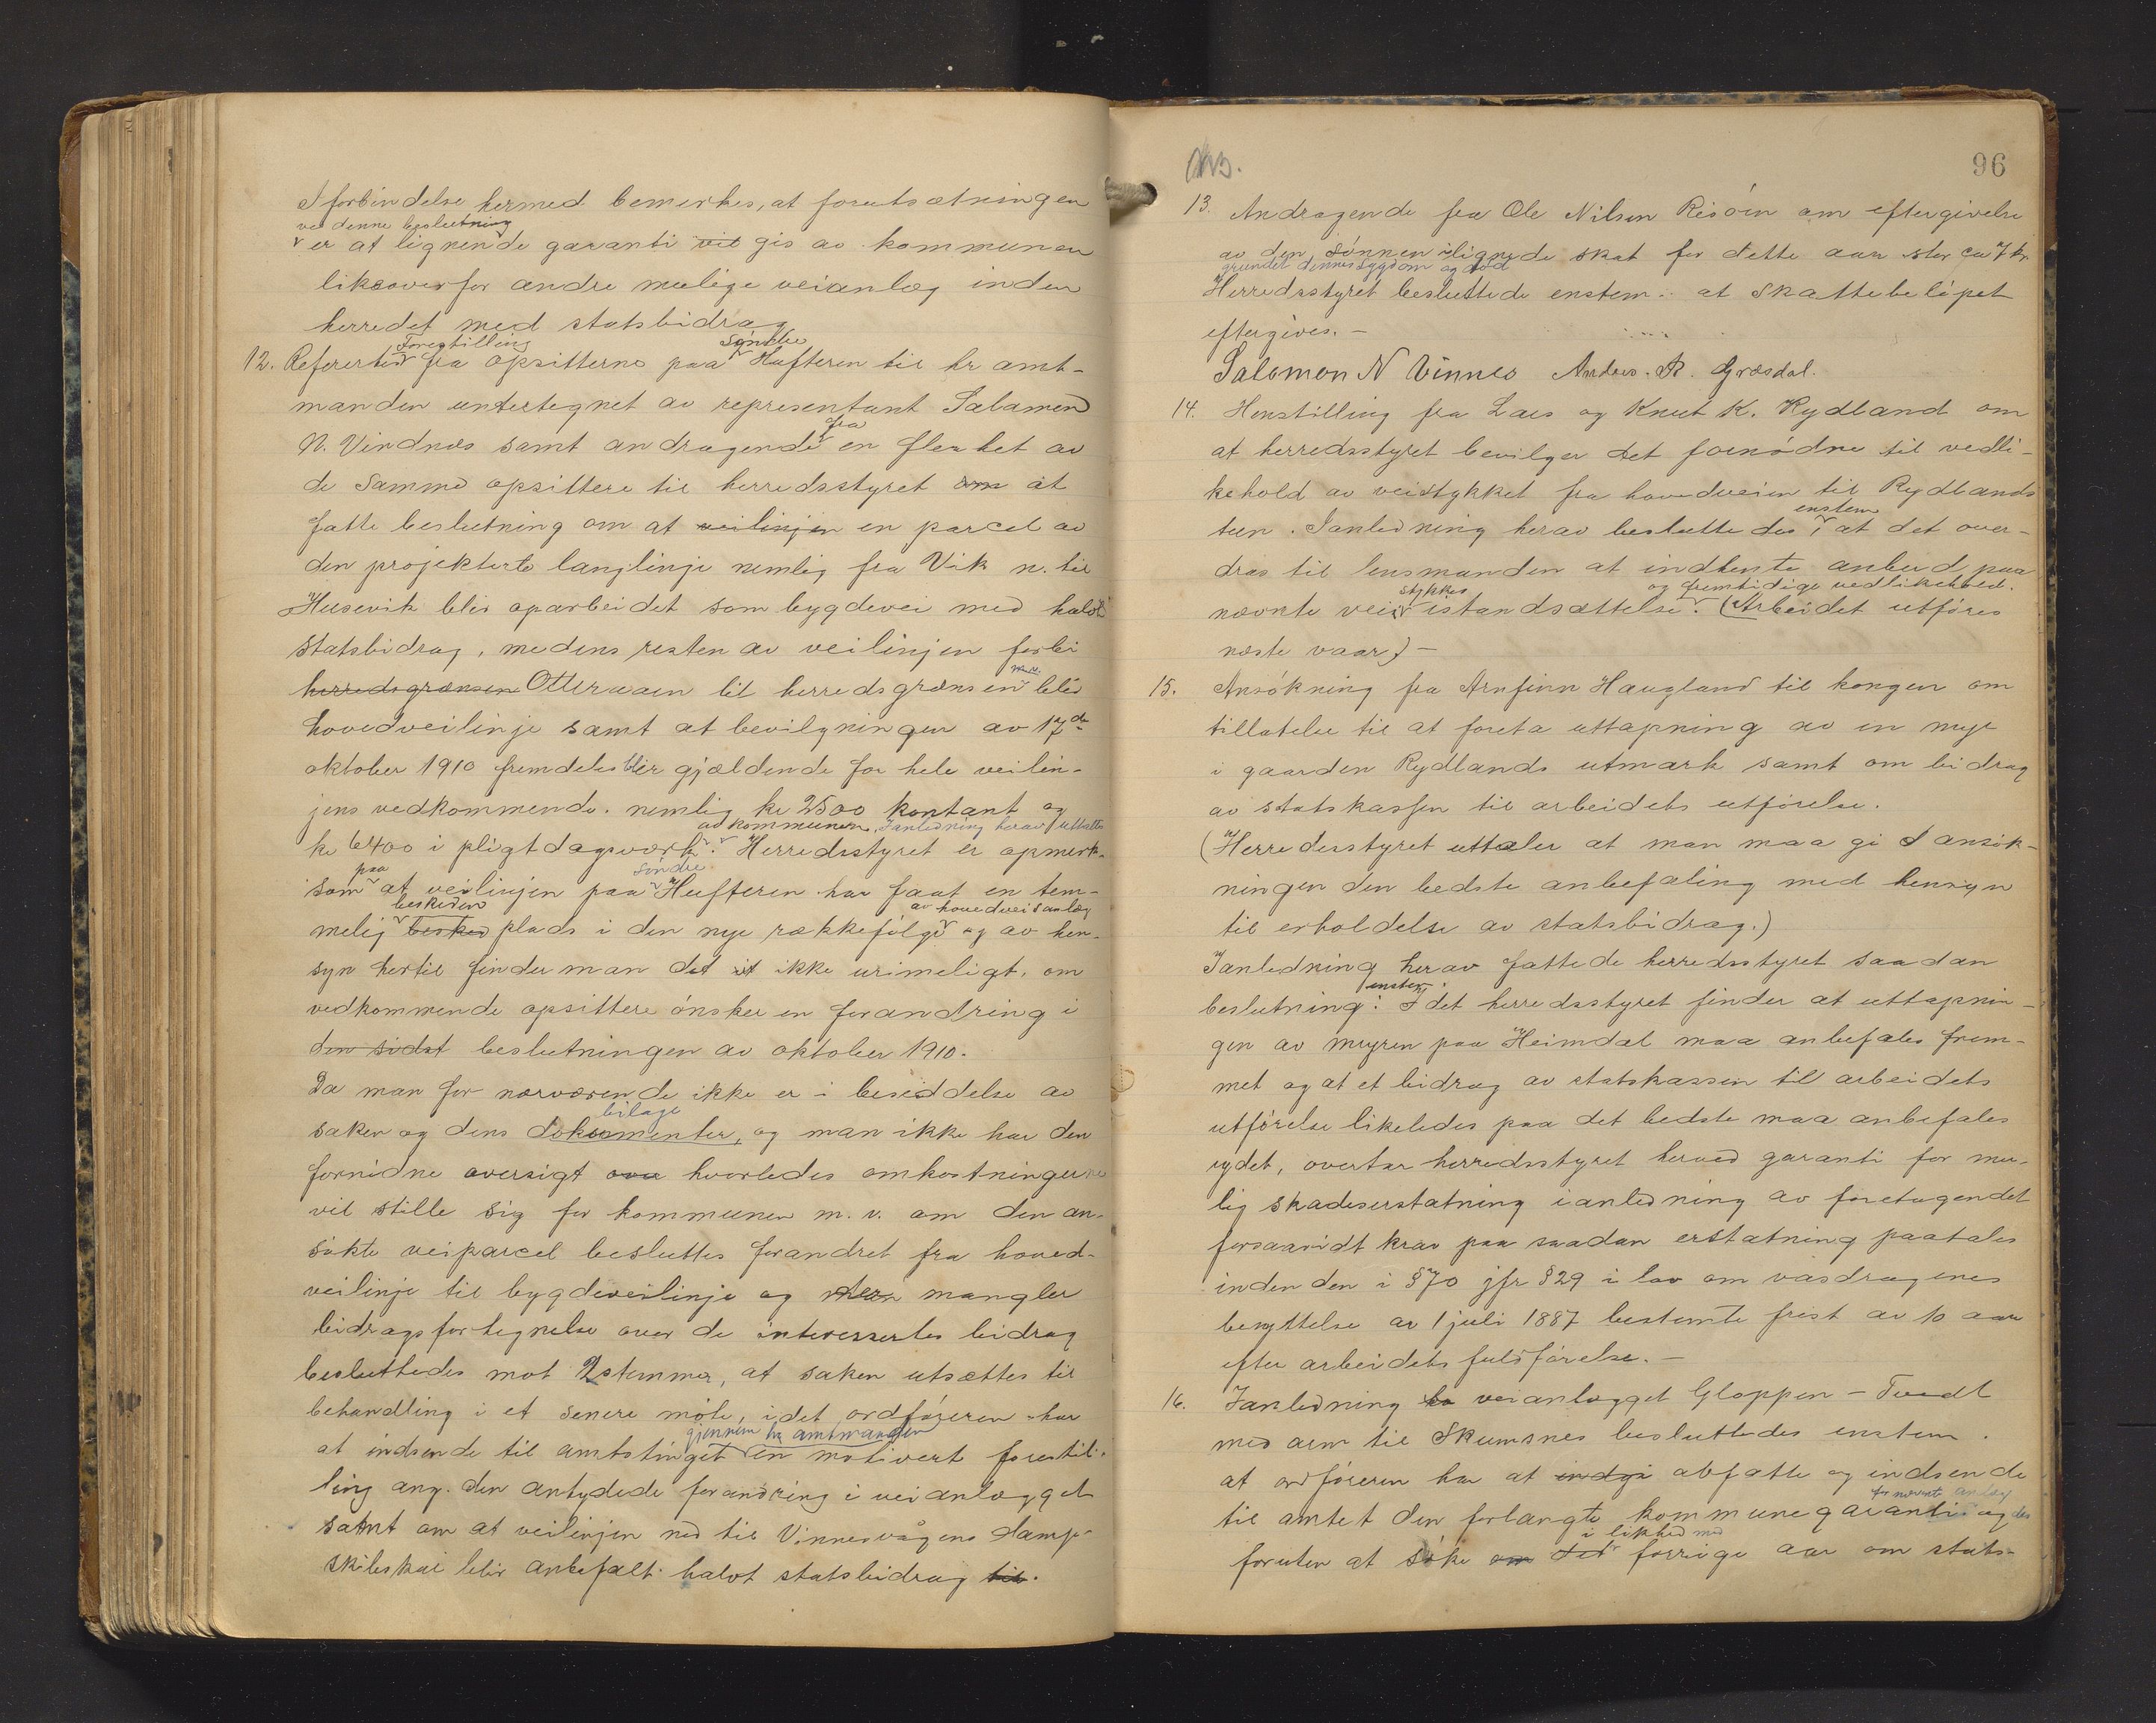 I forbindelse hermed bemerkes, at forutsætningen
ved denne beslutning
er at lignende garanti vil gis av kommunen
likeoverfor andre mulige veianlæg inden
herredet med statsbidrag
Forestilling søndre
12. Refertes fra opsitterne paa Hufteren til hr amt-
manden undertegnet av representant Salamon
N. Vindnes samt andragende fra en flerhet av
de samme opsittere til herredsstyret om at
fatte beslutning om at veilinjen en parcel av
den projekterte langlinje nemlig fra Vik n. til
Husevik blir oparbeidet som bygdevei med halvt
statsbidrag, medens resten av veilinjen forbi
herredsgrænsen Otteraaen til herredsgrænsen m.v. blir
hovedveilinje samt at bevilgningen av 17de
oktober 1910 fremdeles blir gjældende for hele veilin-
jens vedkommende. nemlig kr 2500 kontant og
av kommunen. Ianledning herav uttaltes
kr 6400 i pligtdagsværk. Herredsstyret er opmerk-
paa søndre
som at veilinjen paa Hufteren har faat en tem-
beskeden av hovedveisanlæg
melig besked plads i den nye rækkefølge og av hen-
syn hertil finder man det ikke urimeligt, om
vedkommende opsittere ønsker en forandring i
den sidst beslutningen av oktober 1910.
Da man for nærværende ikke er i besiddelse av
bilage
saken og dens dokumenter, og man ikke har den
fornødne oversigt over hvorledes omkostningerne
vil stille sig for kommunen m. v. om den an-
søkte veiparcel besluttes forandret fra hoved-
veilinje til bygdeveilinje og man mangler
bidragsfortegnelse over de interessertes bidrag
besluttedes mot 2 stemmer, at saken utsættes til
behandling i et senere møte, idet ordføreren har
gjennem hr amtmanden
at indsende til amtstinget en motivert forestil-
ling ang. den antydede forandring i veianlægget
samt om at veilinjen ned til Vinnesvågens damp-
skibskai blir anbefalt halvt statsbidrag til.
96
13. Andragende fra Ole Nilsen Risøen om eftergivelse
av den sønnen ilignede skat for dette aar stor ca 7 kr.
grundet dennes sygdom og død
Herredsstyret besluttede enstem. at skattebeløpet
eftergives. –
Salomon N Vinnes Anders. R. Græsdal.
14. Henstilling fra Lars og Knut K. Rydland om
at herredsstyret bevilger det fornødne til vedli-
kehold av veistykket fra hovedveien til Rydlands
enstem
tun. Ianledning herav besluttedes, at det over-
dras til lensmanden at indhente anbud paa
stykkes og fremtidige vedlikehold.
nævnte vei istandsættelse. (Arbeidet utføres
næste vaar) –
15. Ansøkning fra Arnfinn Haugland til kongen om
tillatelse til at foreta uttapning av en myr
i gaarden Rydlands utmark samt om bidrag
av statskassen til arbeidets utførelse.
(Herredsstyret uttaler at man maa gi ansøk-
ningen den bedste anbefaling med hensyn
til erholdelse av statsbidrag.)
Ianledning herav fattede herredsstyret saadan
enstem.
beslutning: Idet herredsstyret finder at uttapnin-
gen av myren paa Heimdal maa anbefales frem-
met og at et bidrag av statskassen til arbeidets
utførelse likeledes paa det bedste maa anbefales
ydet, overtar herredsstyret herved garanti for mu-
lig skadeserstatning ianledning av foretagendet
forsaavidt krav paa saadan erstatning paatales
inden den i § 70 jfr § 29 i lov om vasdragenes
benyttelse av 1 juli 1887 bestemte frist av 10 aar
efter arbeidets fuldførelse. –
16. Ianledning veianlægget Gloppen – Tvedt
med arm til Skumsnes besluttedes enstem.
at ordføreren har at indgi abfatte og indsende
for nævnte anlæg
til amtet den forlangte kommunegaranti og des
i likhed med
foruten at søke om det forrige aar om stats-